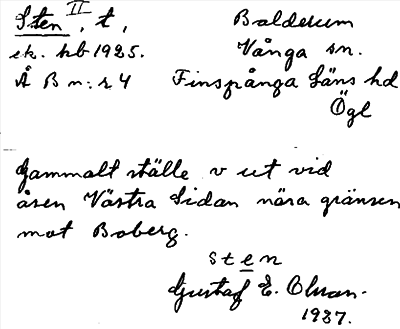 Sten II, t,
ek. kb 1925.
Å B n:r 4
Balderum
Vånga sn.
Finspånga Läns hd
Ögl
Gammalt ställe v ut vid
åsen Västra Sidan nära gränsen
mot Boberg.
sten
Gustaf E. Olsson.
1937.